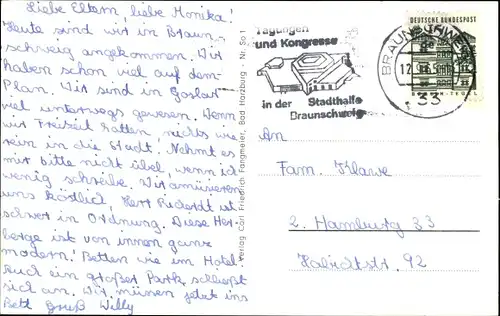 Liebe Eltern, liebe Monika!
Heute sind wir in Braun-
schweig angekommen. Wir
haben schon viel auf dem
Plan. Wir sind in Goslar
viel unterwegs gewesen. Wenn
wir Freizeit hatten nichts wie
rein in die Stadt. Nehmt es
mir bitte nicht übel, wenn ich
wenig schreibe. Wir amüsieren
uns köstlich, Herr
schwer in Ordnung. Diese Her-
berge ist von innen ganz
modern! Betten wie im Hotel.
Auch ein großer Park schließt
sich an. Wir müssen jetzt ins
Bett Gruß Willy
Verlag Carl Friedrich Fangmeier, Bad Harzburg · Nr. So 1
Tagungen
und Kongresse
in der Stadthalle
Braunschweig
BRAUNSCHWEIG
33
DEUTSCHE BUNDESPOST
An
Fam. Klawe
2. Hamburg 33
Habichtstr. 92